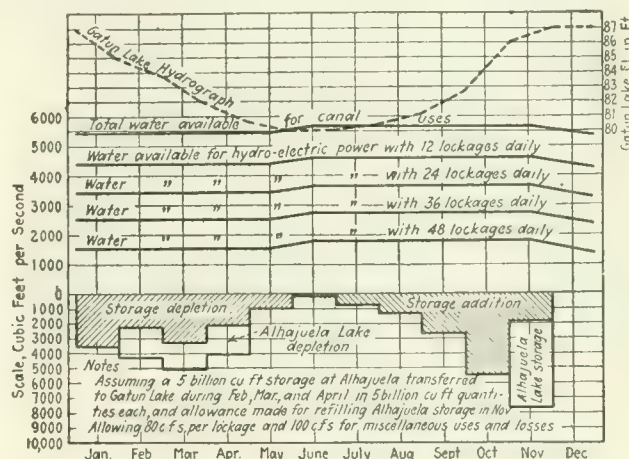 Gatun Lake Hydrograph
87
86
85
84
83
82
81
80
Gatun Lake El. in Ft
6000
5000
4000
3000
2000
1000
0
1000
2000
3000
4000
5000
6000
7000
8000
9000
10,000
Scale, Cubic Feet per Second
Total water available for canal uses
Water available for hydro-electric power with 12 lockages daily
Water " " " " with 24 lockages daily
Water " " " " with 36 lockages daily
Water " " " " with 48 lockages daily
Storage depletion
Storage addition
Alhajuela Lake
depletion
Alhajuela
Lake storage
Notes
Assuming a 5 billion cu ft storage at Alhajuela transferred
to Gatun Lake during Feb, Mar, and April in 5 billion cu ft quanti-
ties each, and allowance made for refilling Alhajuela storage in Nov
Allowing 80 cfs, per lockage and 100 cfs for miscellaneous uses and losses
Jan. Feb Mar. Apr. May June July Aug Sept Oct Nov Dec